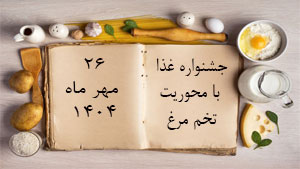 جشنواره غذا
با محوریت
تخم مرغ
۲۶
مهر ماه
۱۴۰۴